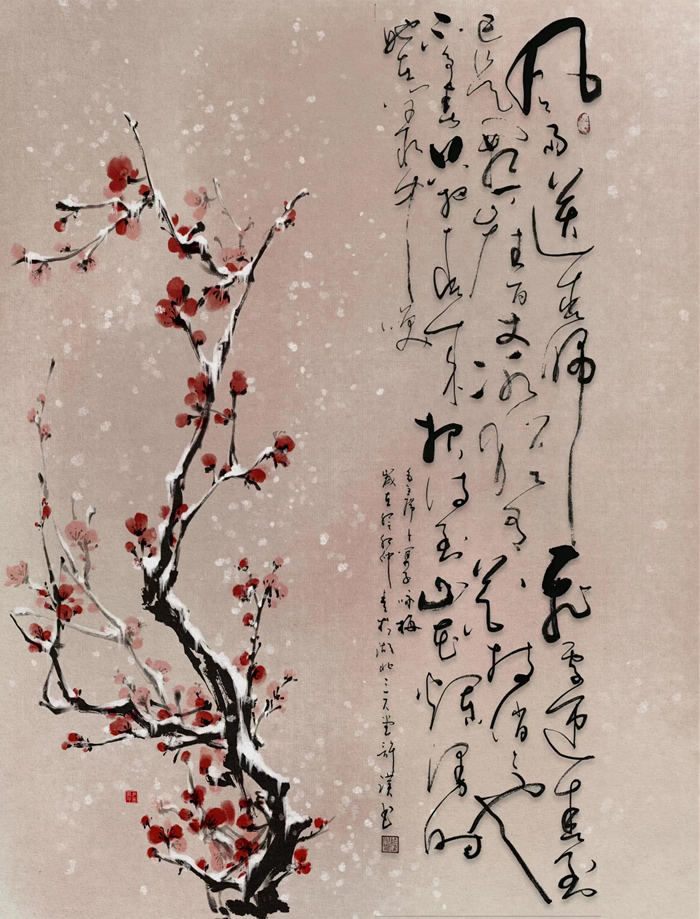 风雨送春归飞雪迎春到
已是悬崖百丈冰犹有花枝俏々也
不争春只把春来报待到山花烂漫时
她在丛中笑
毛主席卜算子咏梅
岁在仲春于湖北三堂許漢书